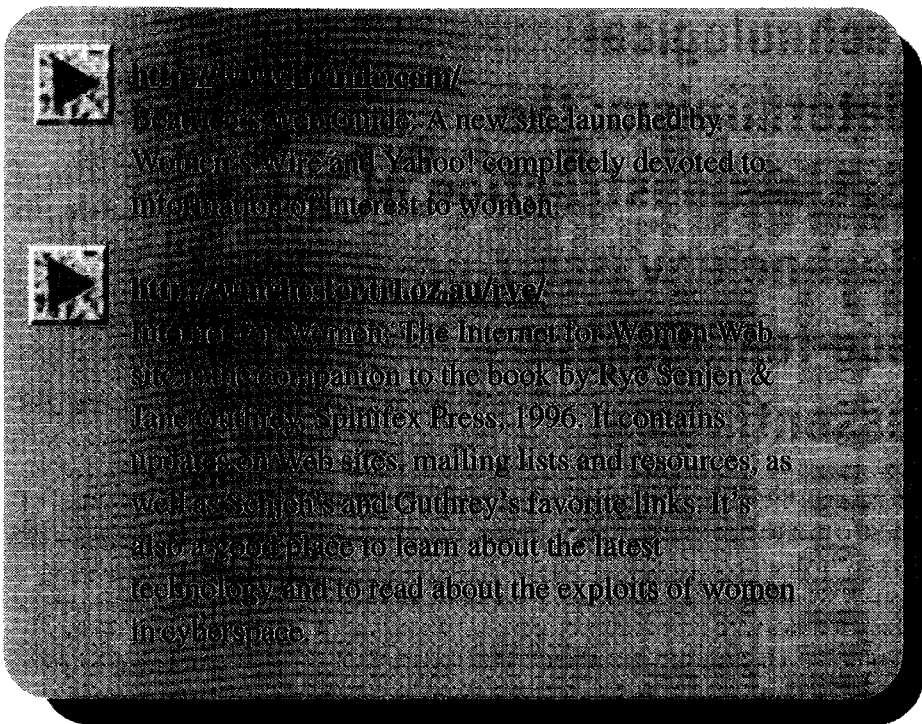 http://www.
Web Guide. A new site launched by
Women's Wire and Yahoo! completely devoted to
information of interest to women.
http://
Internet for Women. The Internet for Women Web
site is the companion to the book by Rye Senjen &
Jane Guthrey, Spinifex Press, 1996. It contains
updates on Web sites, mailing lists and resources, as
well as Senjen's and Guthrey's favorite links. It's
also a good place to learn about the latest
technology and to read about the exploits of women
in cyberspace.